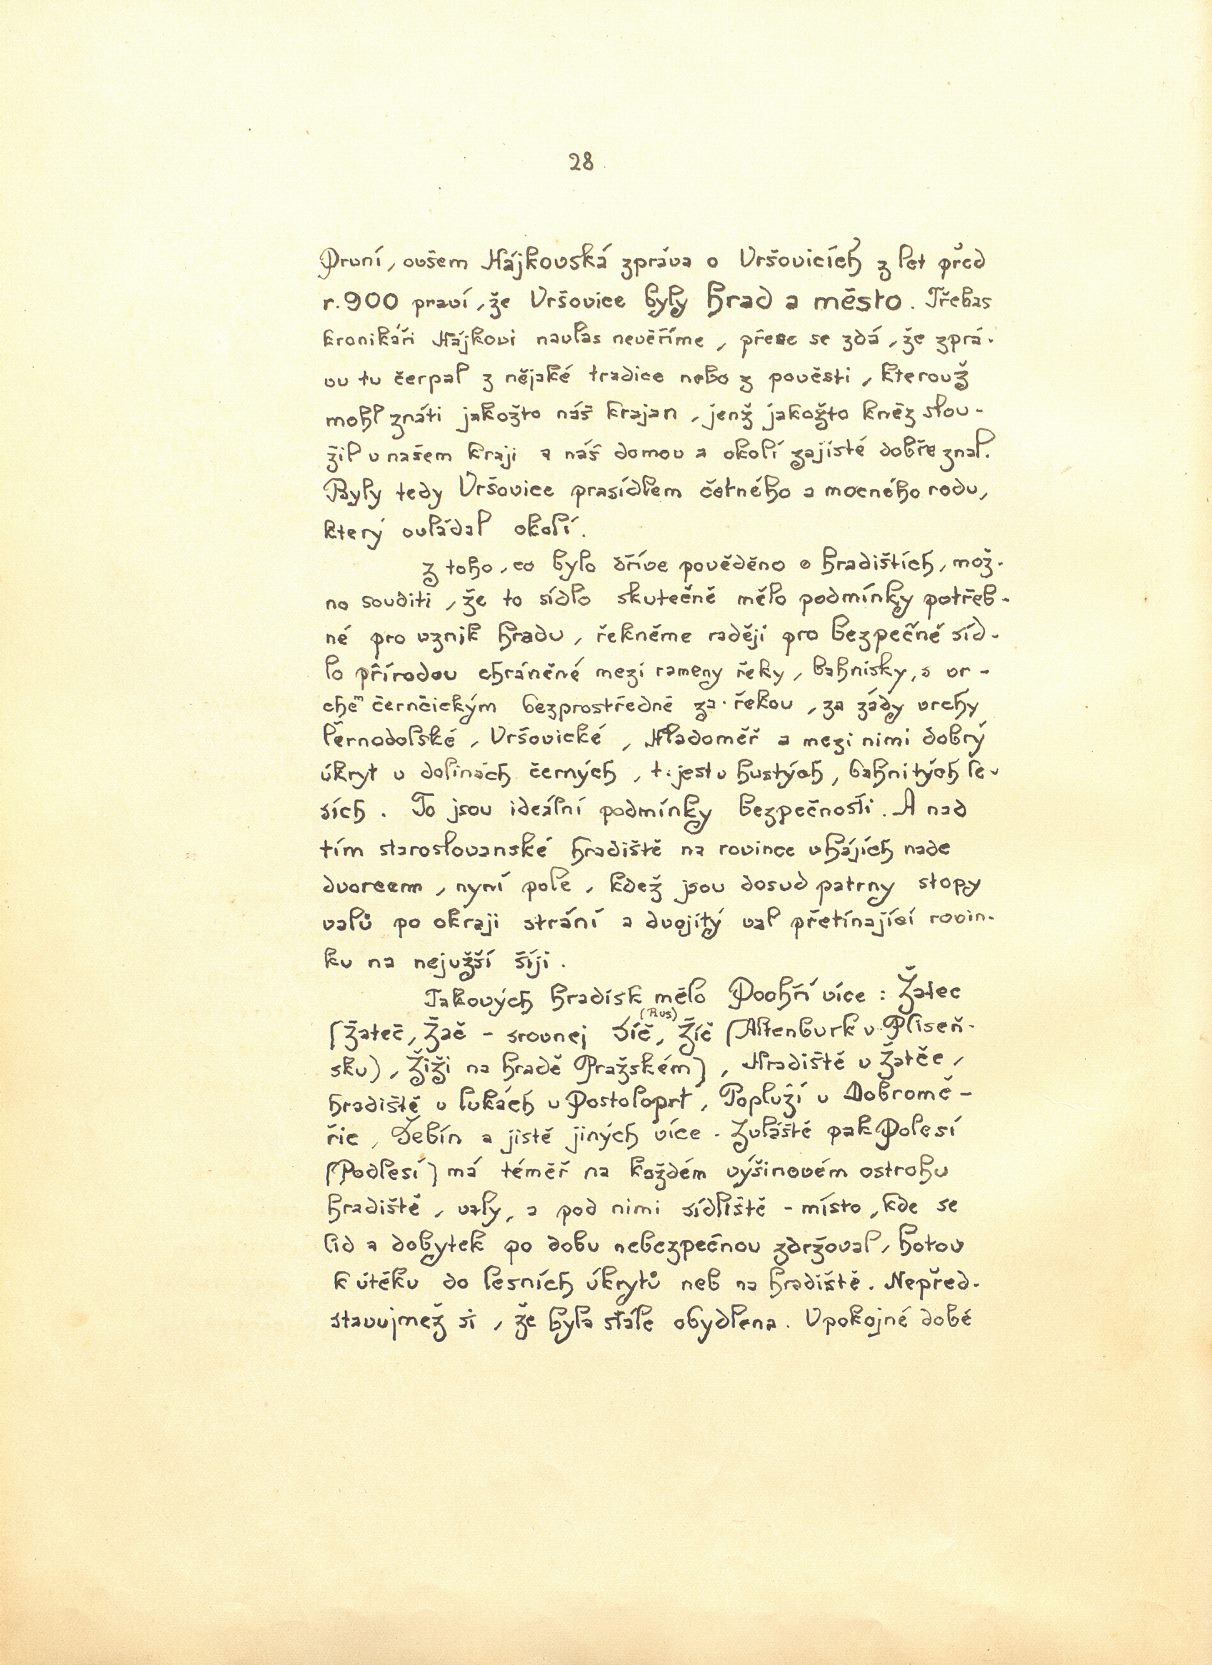 28
První, ovšem Hájkovská zpráva o Vršovicích z let před
r. 900 praví, že Vršovice byly hrad a město. Třebas
kronikáři Hájkovi navlas nevěříme, přece se zdá, že zprá-
vu tu čerpal z nějaké tradice nebo z pověsti, kterouž
mohl znáti jakožto náš krajan, jenž jakožto kněz slou-
žil v našem kraji a náš domov a okolí zajisté dobře znal.
Byly tedy Vršovice prasídlem četného a mocného rodu,
který ovládal okolí.
Z toho, co bylo dříve pověděno o hradištích, mož-
no souditi, že to sídlo skutečně mělo podmínky potřeb-
né pro vznik hradu, řekněme raději pro bezpečné síd-
lo přírodou chráněné mezi rameny řeky, bahnisky, s vr-
chem černčickým bezprostředně za řekou, za zády vrchy
černodolské, Vršovické, Hladoměř a mezi nimi dobrý
úkryt v dolinách černých, t. jest v hustých, bahnitých le-
sích. To jsou ideální podmínky bezpečnosti. A nad
tím staroslovanské hradiště na rovince v hájích nade
dvorcem, nyní pole, kdež jsou dosud patrny stopy
valů po okraji strání a dvojitý val přetínající rovin-
ku na nejužší šíji.
Takových hradisk mělo Poohří více: Žatec
(Žateč, Žač - srovnej Síč, (Rus) Žíč (Altenburk v Pliseň-
sku), Žiži na hradě Pražském), Hradiště u Žatče,
hradiště v lukách u Postoloprt, Popluží u Dobromě-
řic, Šebín a jistě jiných více. Zvláště pak Polesí
(Podlesí) má téměř na každém výšinovém ostrohu
hradiště, valy, a pod nimi sídliště - místo, kde se
lid a dobytek po dobu nebezpečnou zdržoval, hotov
k útěku do lesních úkrytů neb na hradiště. Nepřed-
stavujmež si, že byla stále obydlena. V pokojné době